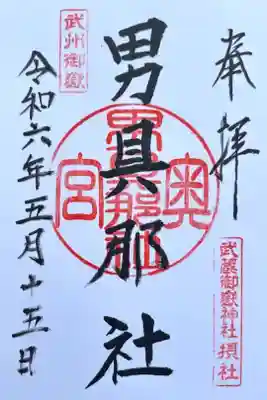 奉拝
武蔵御嶽神社 摂社
男具那社
奥宮
武州御嶽
令和六年五月十五日